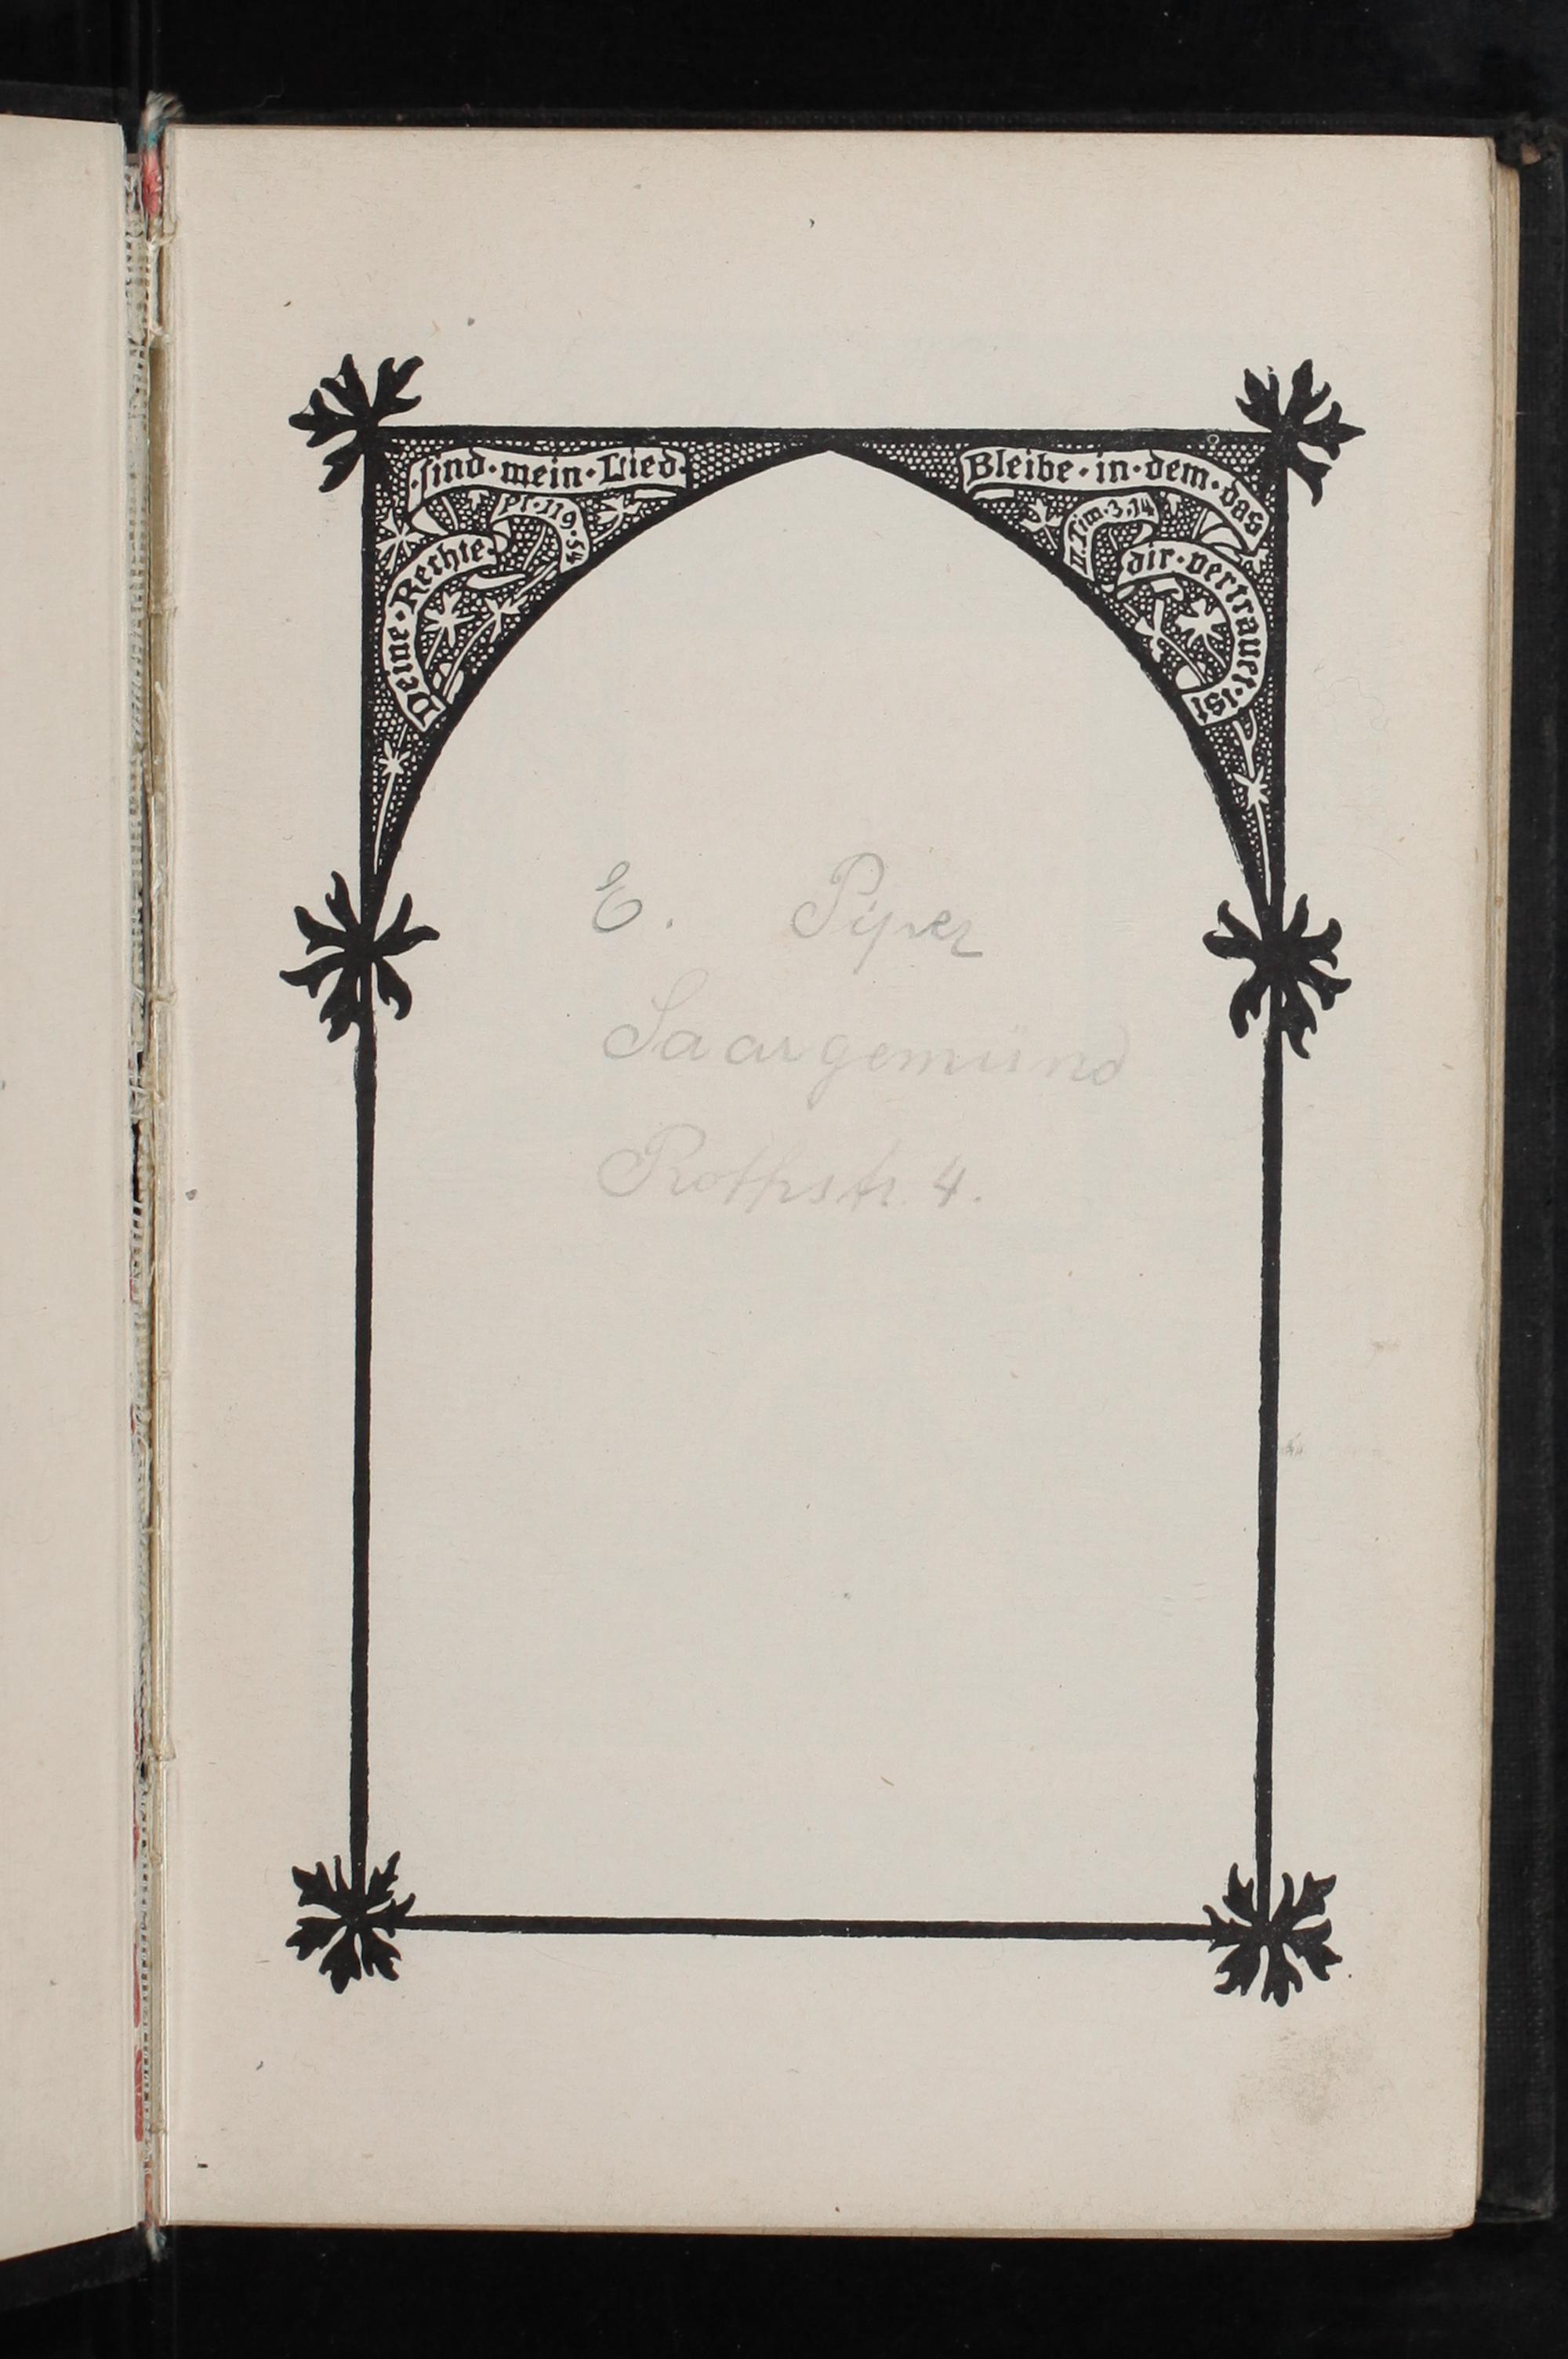 Deine · Rechte ·
· sind · mein · Lied ·
Ps · 119 · 54
Bleibe · in · dem · das
dir · vertrauet · ist
II. Tim · 3, 14
E. Piper
Saargemünd
Rothstr. 4.